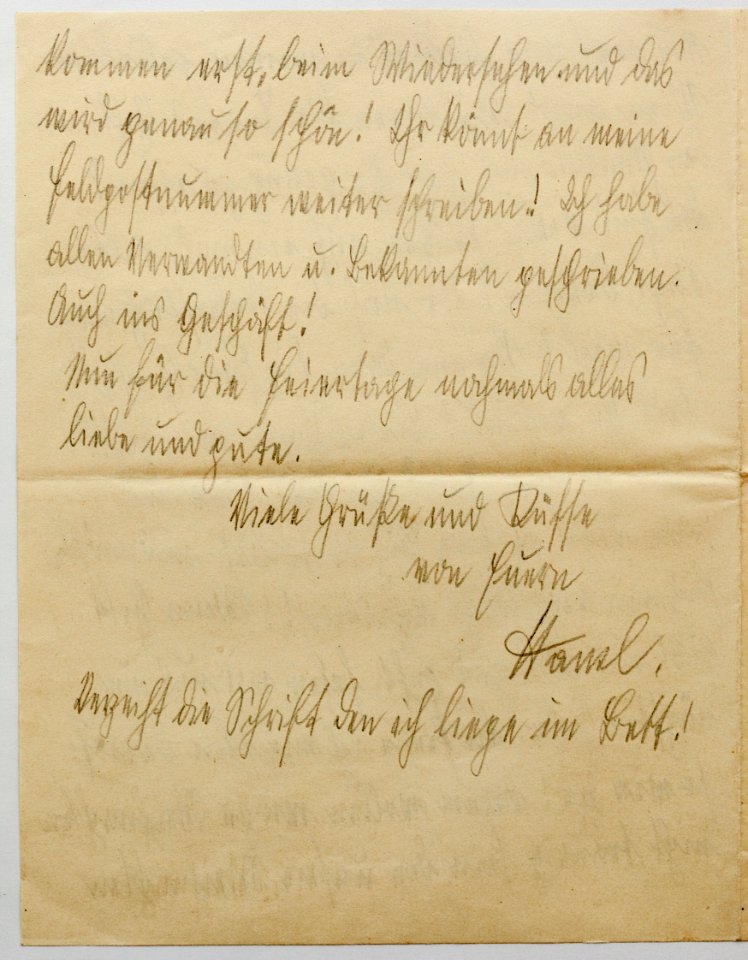 kommen erst, beim Wiedersehen und das
wird genau so schön! Ihr könnt an meine
Feldpostnummer weiter schreiben! Ich habe
allen Verwandten u. Bekannten geschrieben.
Auch ins Geschäft!
Nun für die Feiertage nochmals alles
liebe und gute.
Viele Grüße und Küsse
von Euern
Verzeiht die Schrift den ich liege im Bett!